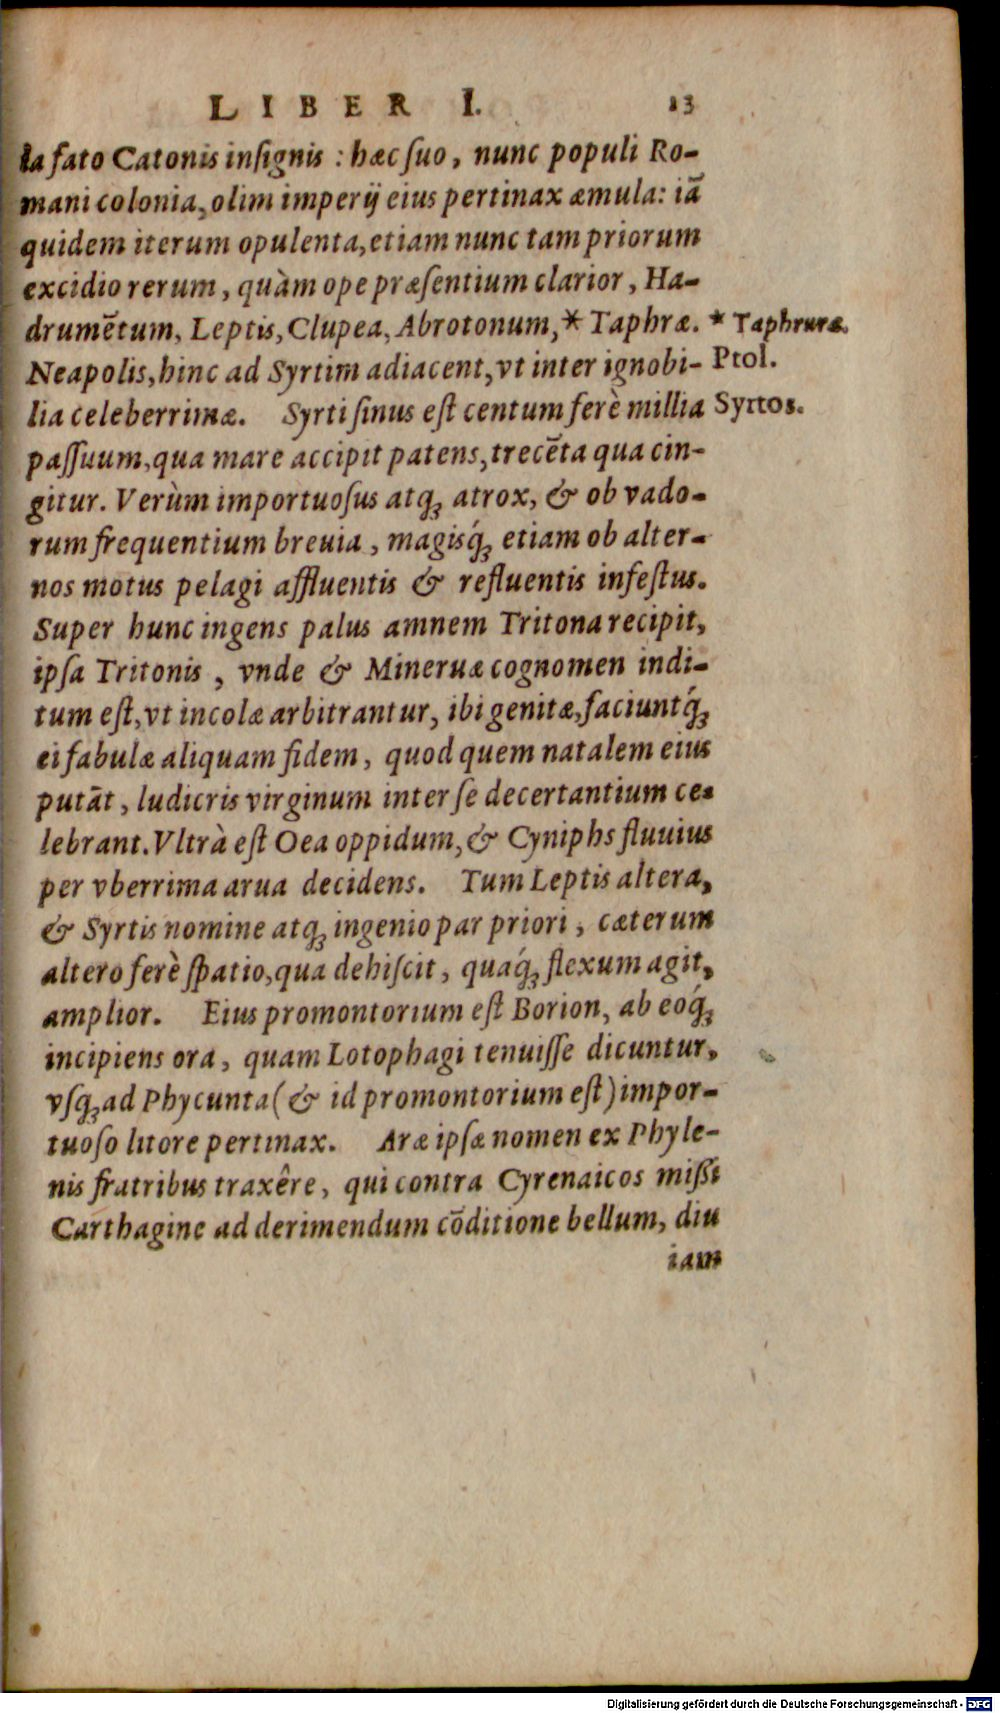 LIBER I. 13
la fato Catonis inſignis : hæc ſuo, nunc populi Ro-
mani colonia, olim imperij eius pertinax æmula: iã
quidem iterum opulenta, etiam nunc tam priorum
excidio rerum, quàm ope præſentium clarior, Ha-
drumẽtum, Leptis, Clupea, Abrotonum, * Taphræ.
* Taphruræ.
Neapolis, hinc ad Syrtim adiacent, vt inter ignobi-
Ptol.
lia celeberrimæ. Syrti ſinus eſt centum ferè millia
Syrtos.
paſſuum, qua mare accipit patens, trecẽta qua cin-
gitur. Verùm importuoſus atq́ꝫ atrox, & ob vado-
rum frequentium breuia, magisq́ꝫ etiam ob alter-
nos motus pelagi affluentis & refluentis infeſtus.
Super hunc ingens palus amnem Tritona recipit,
ipſa Tritonis, vnde & Mineruæ cognomen indi-
tum eſt, vt incolæ arbitrantur, ibi genitæ, faciuntq́ꝫ
ei fabulæ aliquam fidem, quod quem natalem eius
putãt, ludicris virginum inter ſe decertantium ce-
lebrant. Vltrà eſt Oea oppidum, & Cyniphs fluuius
per vberrima arua decidens. Tum Leptis altera,
& Syrtis nomine atqꝫ ingenio par priori, cæterum
altero ferè ſpatio, qua dehiſcit, quaq́ꝫ flexum agit,
amplior. Eius promontorium eſt Borion, ab eoq́ꝫ
incipiens ora, quam Lotophagi tenuiſſe dicuntur,
vſqꝫ ad Phycunta (& id promontorium eſt) impor-
tuoſo litore pertinax. Aræ ipſæ nomen ex Phyle-
nis fratribus traxêre, qui contra Cyrenaicos miſsi
Carthagine ad derimendum cõditione bellum, diu
iam
Digitalisierung gefördert durch die Deutsche Forschungsgemeinschaft - DFG